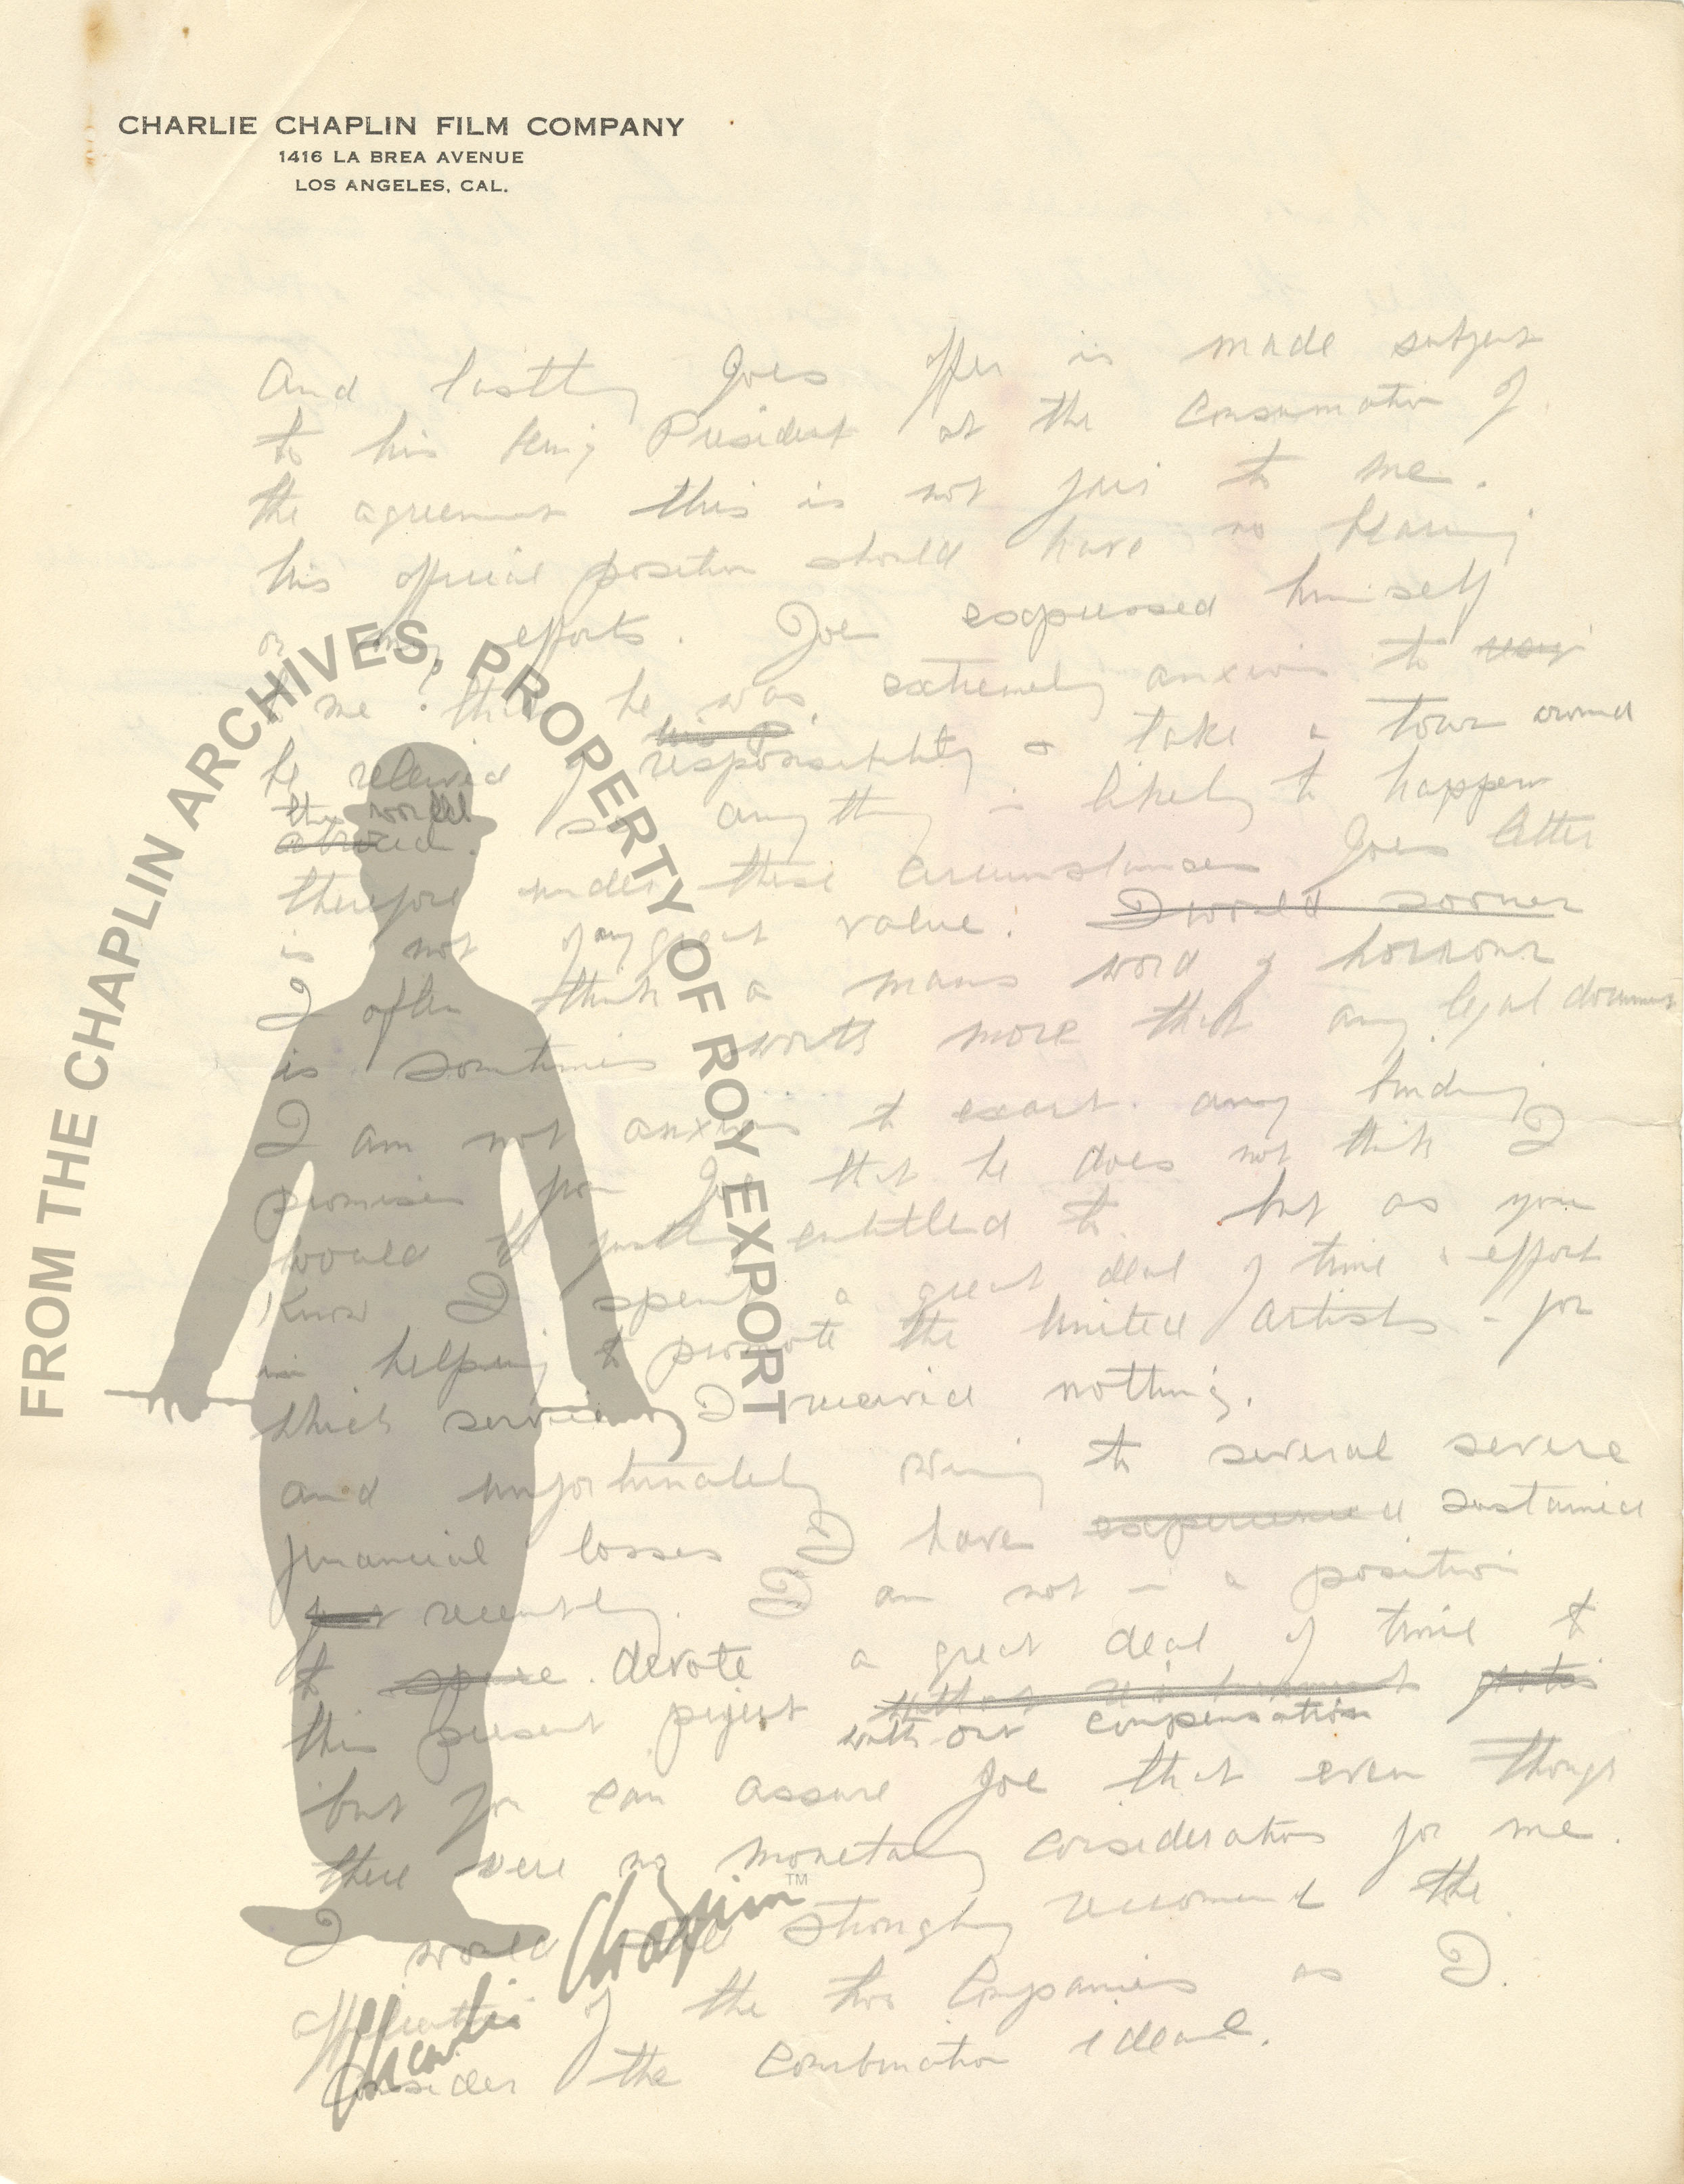 CHARLIE CHAPLIN FILM COMPANY
1416 LA BREA AVENUE
LOS ANGELES, CAL.
And lastly Joes offer is made subject
to his being President at the consumation of
the agreement this is not fair to me.
his official position should have no bearing
on my efforts. Joe expressed himself
to me that he was extremely anxious to
be relieved of his responsibility & take a tour around
the world
abroad. So anything is likely to happen
therefore under these circumstances Joes letter
is not of any great value: I would sooner
I often think a mans word of honnour
is sometimes worth more that any legal document
I am not anxious to exact any binding
promises from Joe that he does not think I
would be justly entitled to. but as you
know I spent a great deal of time & effort
in helping to promote the United Artists - for
which services I received nothing.
and unfortunately owing to several severe
financial losses I have experienced sustained
recently. I am not in a position
to spare devote a great deal of time to
this present project without
without compensation
but you can assure Joe that even though
there were no monetary consideration for me.
I would strongly recomend the
affiliation of the two Companies as I.
Consider the combination ideal.
FROM THE CHAPLIN ARCHIVES, PROPERTY OF ROY EXPORT
Charlie Chaplin TM